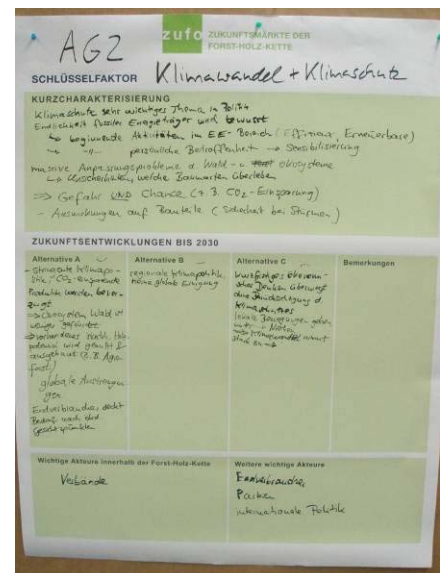 AG2
zufo ZUKUNFTSMÄRKTE DER
FORST-HOLZ-KETTE
SCHLÜSSELFAKTOR Klimawandel + Klimaschutz
KURZCHARAKTERISIERUNG
Klimaschutz sehr wichtiges Thema in Politik
Endlichkeit fossiler Energieträger wird bewusst
↳ beginnende Aktivitäten im EE-Bereich (Effizienz, Erneuerbare)
↳ -"- persönliche Betroffenheit → Sensibilisierung
massive Anpassungsprobleme d. Wald- u. Ökosysteme
↳ Unsicherheiten, welche Baumarten überleben
⇒ Gefahr UND Chance (z.B. CO2-Einsparung)
- Auswirkungen auf Bauteile (Sicherheit bei Stürmen)
ZUKUNFTSENTWICKLUNGEN BIS 2030
Alternative A
- stringente Klimapo-
litik, CO2-einsparende
Produkte werden bevor-
zugt
⇒ Ökosystem Wald ist
weniger gefährdet
⇒ vorhandenes Holz
potenzial wird genutzt &
ausgebaut (z.B. Agro-
forst)
globale Anstrengun-
gen
Endverbraucher deckt
Bedarf nach
Gesichtspunkten
Alternative B
regionale Klimapolitik,
keine globale Einigung
Alternative C
kurzfristiges ökonomi-
sches Denken überwiegt
ohne Berücksichtigung d.
Klimaschutzes
lokale Bewegungen gehen
unter
⇒ Klimawandel nimmt
stark zu
Bemerkungen
Wichtige Akteure innerhalb der Forst-Holz-Kette
Verbände
Weitere wichtige Akteure
Endverbraucher
Parteien
internationale Politik